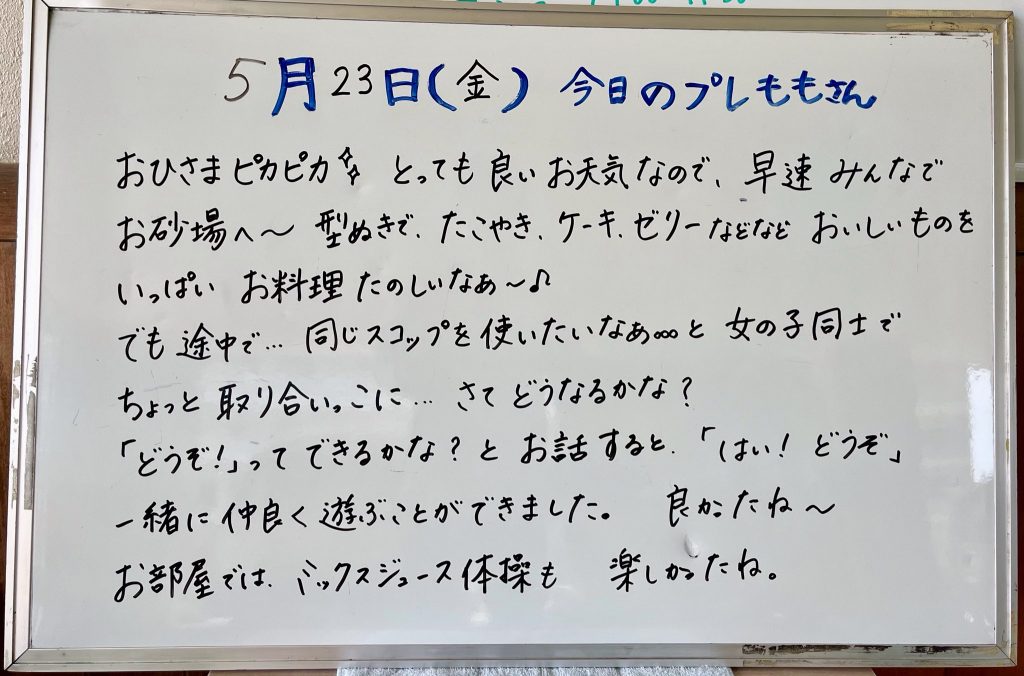 5月23日(金) 今日のプレももさん
おひさまピカピカ✨ とっても良いお天気なので、早速 みんなで
お砂場へ〜 型ぬきで、たこやき、ケーキ、ゼリーなどなど おいしいものを
いっぱい お料理 たのしいなぁ〜♪
でも 途中で… 同じスコップを使いたいなぁ… と 女の子同士で
ちょっと 取り合いっこに… さて どうなるかな?
「どうぞ!」って できるかな? と お話すると、「はい! どうぞ」
一緒に 仲良く 遊ぶことができました。 良かったね〜
お部屋では、ミックスジュース体操も 楽しかったね。